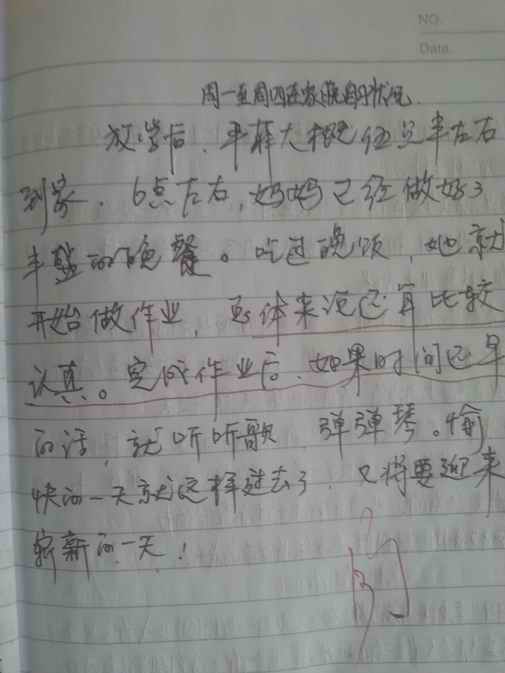 NO.
Date.
周一至周四在家晚自习状况.
放学后, 半菲大概五点半左右
到家. 6点左右, 妈妈已经做好了
丰盛的晚餐。吃过晚饭, 她就
开始做作业, 总体来说还算比较
认真。完成作业后, 如果时间还早
的话, 就听听歌 弹弹琴。愉
快的一天就这样过去了, 又将要迎来
崭新的一天!
阅